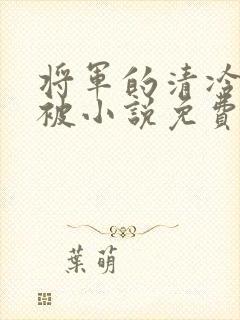 將軍的清冷
被小說免費
葉萌